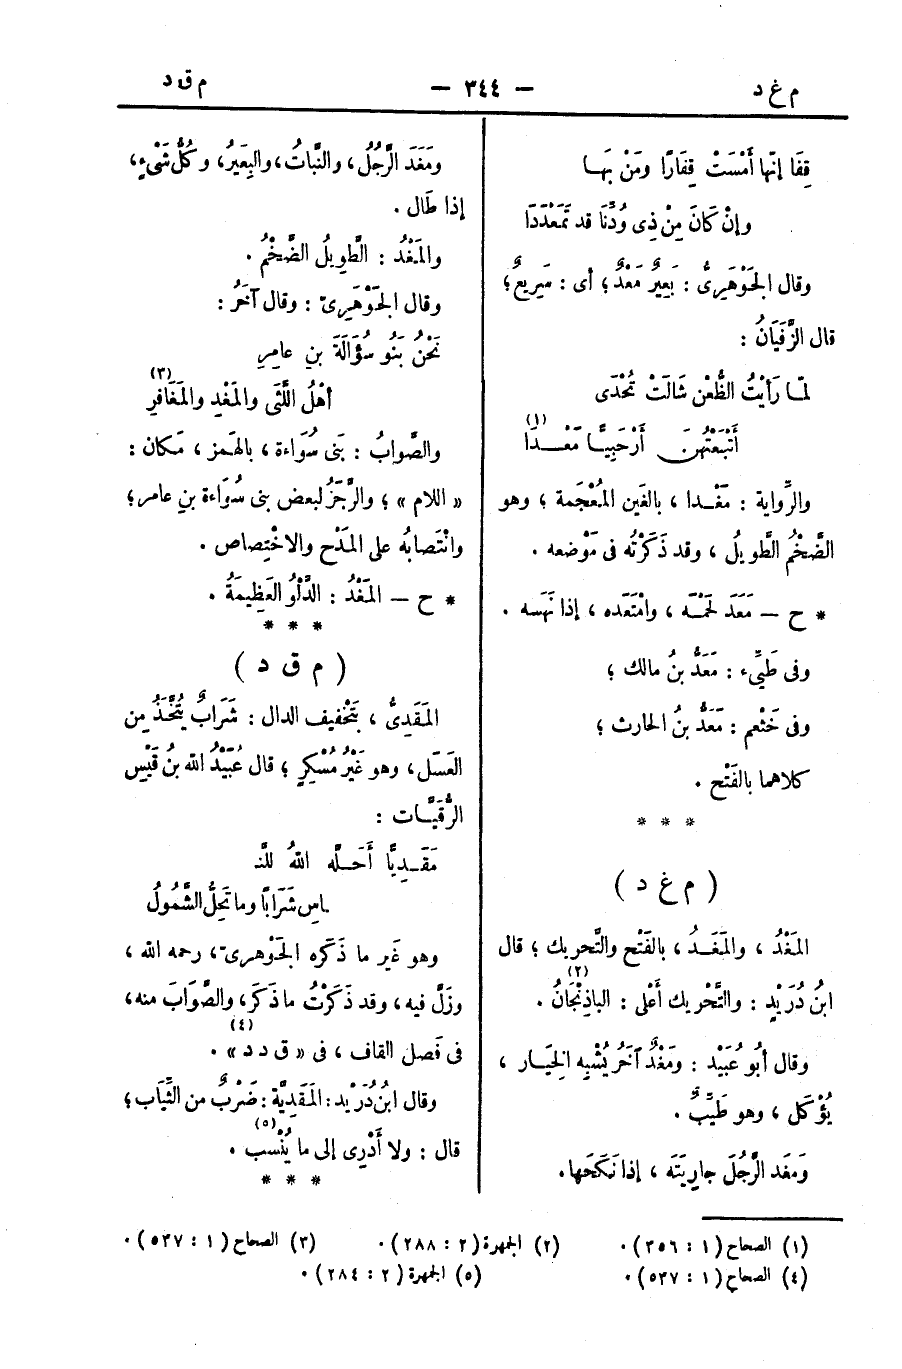 م غ د
— ٣٤٤ —
م ق د
قِفَا إنّها أَمْسَتْ قِفَارًا ومَنْ بَهـا
وإنْ كَانَ مِنْ ذِى وُدِّنَا قد تَمَعْدَدَا
وقال الجَوْهَرِىُّ : بَعِيرٌ مَعْدٌ ؛ أى : سَرِيعٌ ؛
قال الزَّفَيَانُ :
لمّـا رَأَيْتُ الظُّعْن شَالَتْ تُحْدَى
أَتْبَعْتُهُنّ أَرْحَبِيًّـا مَعْـدَا (١)
والرِّواية : مَغْـدا ، بالغَين المُعْجَمة ؛ وهو
الضَّخْمُ الطَّوِيلُ ، وقد ذَكَرْتُه فى مَوْضعه .
* ح — مَعَدَ لَحْمَـه ، وامْتَعَده ، إذا نَهَسه .
وفى طَيِّء : مَعَدُّ بنُ مالك ؛
وفى خَثْعم : مَعَدُّ بنُ الحارث ؛
كلاهما بالفَتْح .
* * *
( م غ د )
المَغْدُ ، والمَغَـدُ ، بالفَتْح والتَّحريك ؛ قال
ابنُ دُرَيْدٍ : والتَّحْرِيك أَعْلى : الباذِنْجَانُ (٢) .
وقال أبُو عُبَيْد : ومَغْدٌ آخَرُ يُشْبِه الخِيَـار ،
يُؤْكَل ، وهو طَيِّبٌ .
ومَغَد الرَّجُلَ جارِيَتَه ، إذا نَكَحَها .
ومَغَدَ الرَّجُلُ ، والنَّباتُ ، والبِعَيرُ ، وكُلُّ شَىْءٍ ،
إذا طَال .
والمَغْدُ : الطَّوِيلُ الضَّخْمُ .
وقال الجَوْهَرِىّ : وقال آخَرُ :
نَحْنُ بَنُو سُؤَالَةَ بنِ عامِرِ
أَهْلُ اللَّثَى والمَغْدِ والمَغَافِرِ (٣)
والصَّوابُ : بَنى سُوَاءة ، بالهَمز ، مَكان :
« اللام » ؛ والرَّجَزُ لبعض بنى سُوَاءة بنِ عامر ؛
وانْتَصابُه على المَدْح والاخْتِصاص .
* ح — المَغْدُ : الدَّلْوُ العَظِيمَةُ .
* * *
( م ق د )
المَقَدِىُّ ، بتَخْفيف الدال : شَرَابٌ يُتَّخَذُ مِن
العَسَل ، وهو غَيْرُ مُسْكِرٍ ؛ قال عُبَيْدُ الله بنُ قَيْسِ
الرُّقَيَّـات :
مَقَـدِيًّا أَحَـلَّه اللهُ للنّـَ
ـاسِ شَرَابًا وما تَحِلُّ الشَّمُولُ
وهو غَير ما ذَكَره الجَوْهرىّ ، رحمه الله ،
وزَلَّ فيه ، وقد ذَكَرْتُ ما ذَكَر ، والصَّوَابَ منه ،
فى فَصل القاف ، فى « ق د د » (٤) .
وقال ابنُ دُرَيْد : المَقَدِيَّة : ضَرْبٌ من الثِّيَاب ؛
قال : ولا أَدْرِى إلى ما يُنْسب (٥) .
* * *
(١) الصحاح (١ : ٣٥٦) . (٢) الجمهرة (٢ : ٢٨٨) . (٣) الصحاح (١ : ٥٣٧) .
(٤) الصحاح (١ : ٥٣٧) . (٥) الجمهرة (٢ : ٢٨٤) .